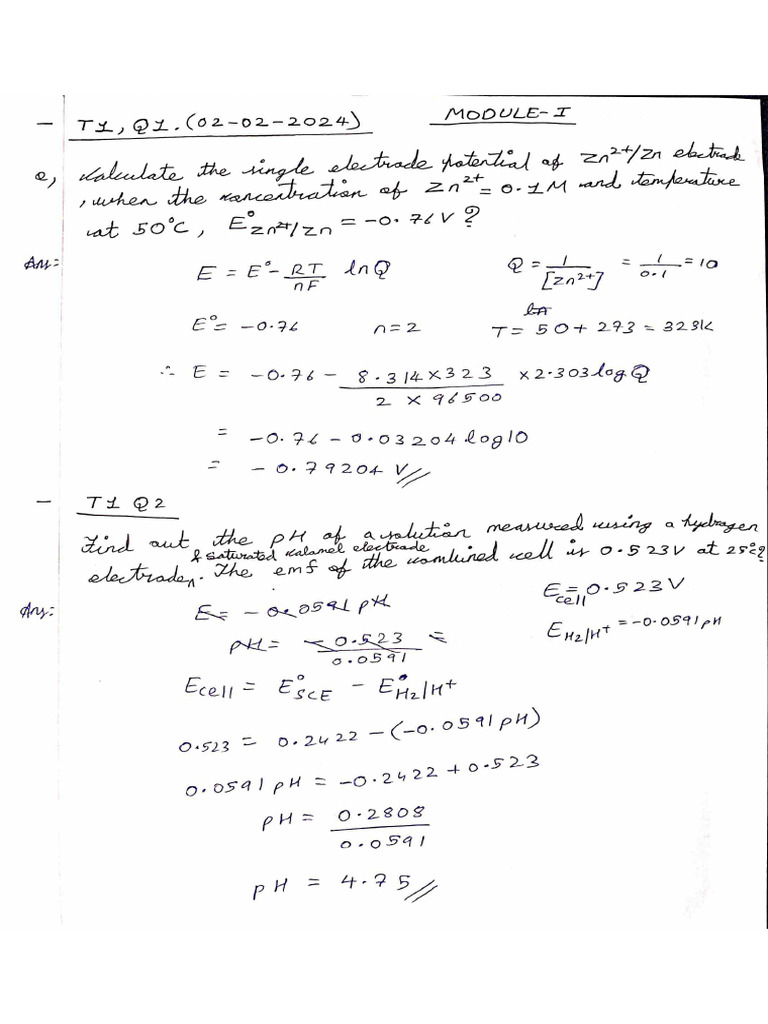 MODULE-I
- T1, Q1. (02-02-2024)
Q, Calculate the single electrode potential of Zn²⁺/Zn electrode
, when the concentration of Zn²⁺ = 0.1M and temperature
at 50°C, E°Zn²⁺/Zn = -0.76V ?
Ans:
E = E° - RT/nF lnQ    Q = 1/[Zn²⁺] = 1/0.1 = 10
E° = -0.76    n=2    T = 50 + 273 = 323K
∴ E = -0.76 - 8.314×323/2 × 96500 ×2.303 log Q
= -0.76 - 0.03204 log10
= -0.79204 V //
- T1 Q2
Find out the pH of a solution measured using a hydrogen
& saturated kalamel electrode
electrode. The emf of the combined cell is 0.523V at 25°C?
Ans:
E = -0.0591 pH    Ecell = 0.523V
pH = -0.523/0.0591 =    EH2/H+ = -0.0591 pH
Ecell = E°SCE - E°H2/H+
0.523 = 0.2422 - (-0.0591 pH)
0.0591 pH = -0.2422 + 0.523
pH = 0.2808/0.0591
pH = 4.75 //